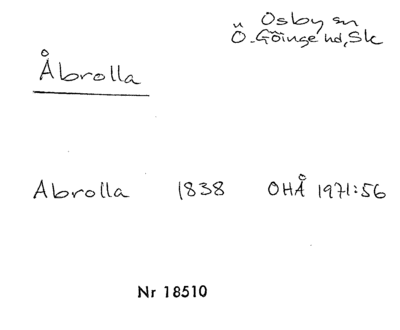 Osby sn
Ö. Göinge hd, Sk
Åbrolla
Abrolla 1838 OHÅ 1971:56
Nr 18510